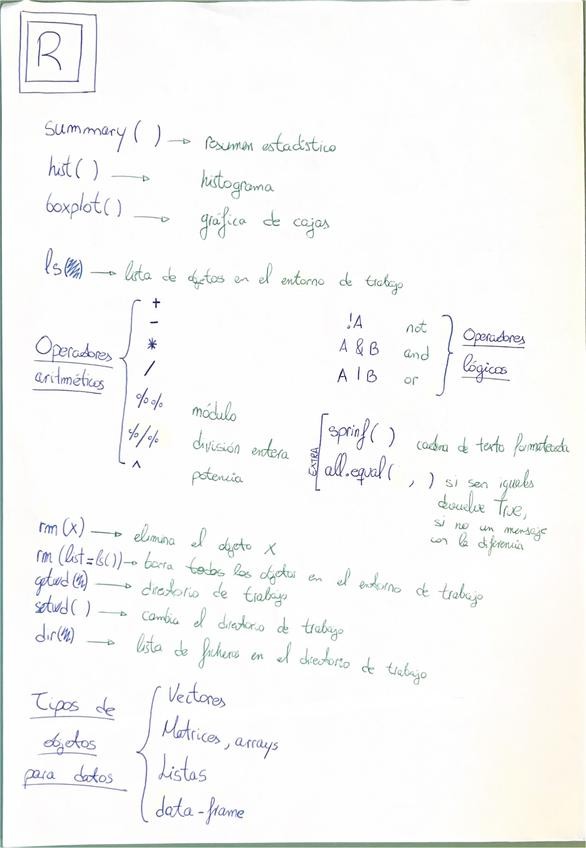 R
summary ( ) → resumen estadístico
hist ( ) → histograma
boxplot ( ) → gráfica de cajas
ls( ) → lista de objetos en el entorno de trabajo
Operadores aritméticos
+
-
*
/
%% módulo
%/% división entera
^ potencia
!A not
A & B and
A | B or
Operadores lógicos
EXTRA
sprinf ( ) cadena de texto formateada
all.equal ( , ) si son iguales
devuelve True,
si no un mensaje
con la diferencia
rm (x) → elimina el objeto x
rm (list=ls()) → borra todos los objetos en el entorno de trabajo
getwd ( ) → directorio de trabajo
setwd ( ) → cambia el directorio de trabajo
dir ( ) → lista de ficheros en el directorio de trabajo
Tipos de
objetos
para datos
Vectores
Matrices, arrays
Listas
data-frame